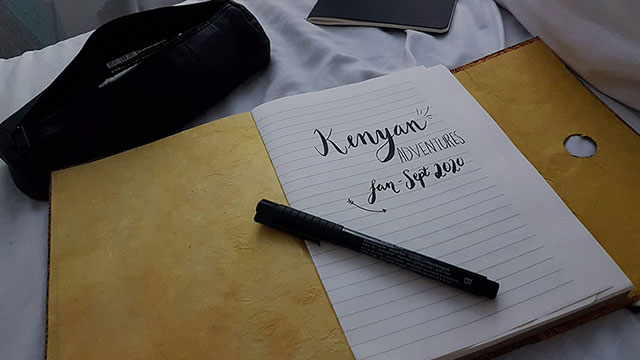 Kenyan
ADVENTURES
Jan - Sept 2020
B